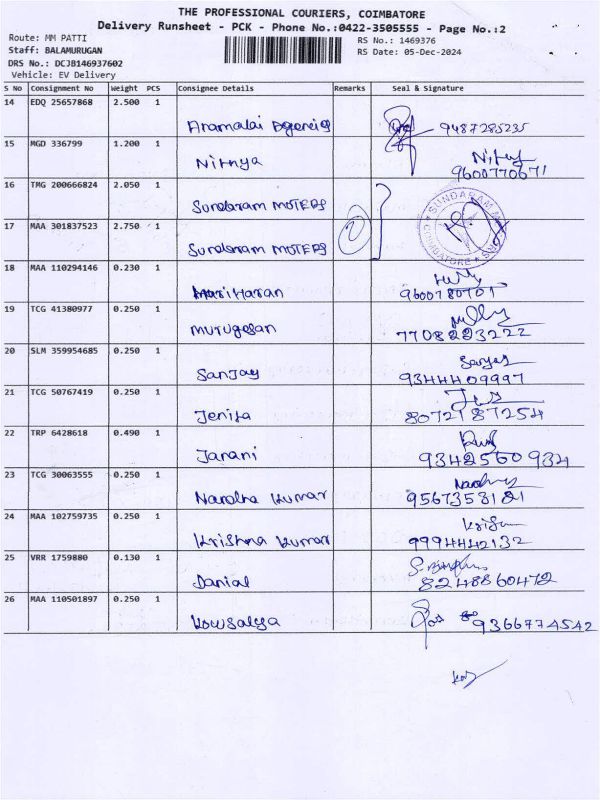 THE PROFESSIONAL COURIERS, COIMBATORE
Delivery Runsheet - PCK - Phone No.:0422-3505555 - Page No.:2
Route: MM PATTI
RS No.: 1469376
Staff: BALAMURUGAN
RS Date: 05-Dec-2024
DRS No.: DCJB146937602
Vehicle: EV Delivery
S No Consignment No Weight PCS Consignee Details Remarks Seal & Signature
14 EDQ 25657868 2.500 1
9487285235
15 MGD 336799 1.200 1
Nithya 9600770671
16 TMG 200666824 2.050 1
Sundaram MOTERS
SUNDARAM
COIMBATORE
17 MAA 301837523 2.750 1
Sundaram MOTERS
2
18 MAA 110294146 0.230 1
Hariharan 9600780701
19 TCG 41380977 0.250 1
murugesan 7708223222
20 SLM 359954685 0.250 1
Sanjay 9344409997
21 TCG 50767419 0.250 1
Jenita 8072187254
22 TRP 6428618 0.490 1
Janani 9342560934
23 TCG 30063555 0.250 1
Kumar
24 MAA 102759735 0.250 1
Krishna Kumar 9994442132
25 VRR 1759880 0.130 1
Danial 8248860472
26 MAA 110501897 0.250 1
Kowsalya 9366774542